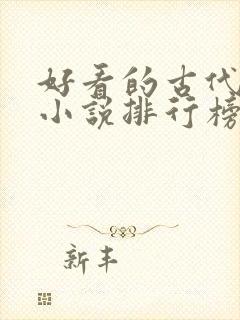 好看的古代
小说排行榜
新丰